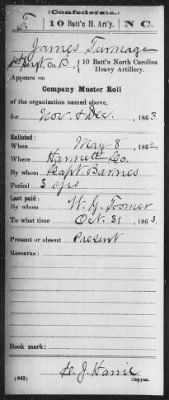 (Confederate.)
T 10 Batt'n H. Art'y. N C.
James Turmage
Capt Co. B, 10 Batt'n North Carolina Heavy Artillery.
Appears on
Company Muster Roll
of the organization named above,
for Nov. & Dec. , 1863
Enlisted:
When May 8 , 1862
Where Harnett Co.
By whom Capt. Barnes
Period 3 yrs
Last paid:
By whom W. G. Toomer
To what time Oct. 31 , 1863.
Present or absent Present
Remarks:
Book mark:
(642)
Copyist.